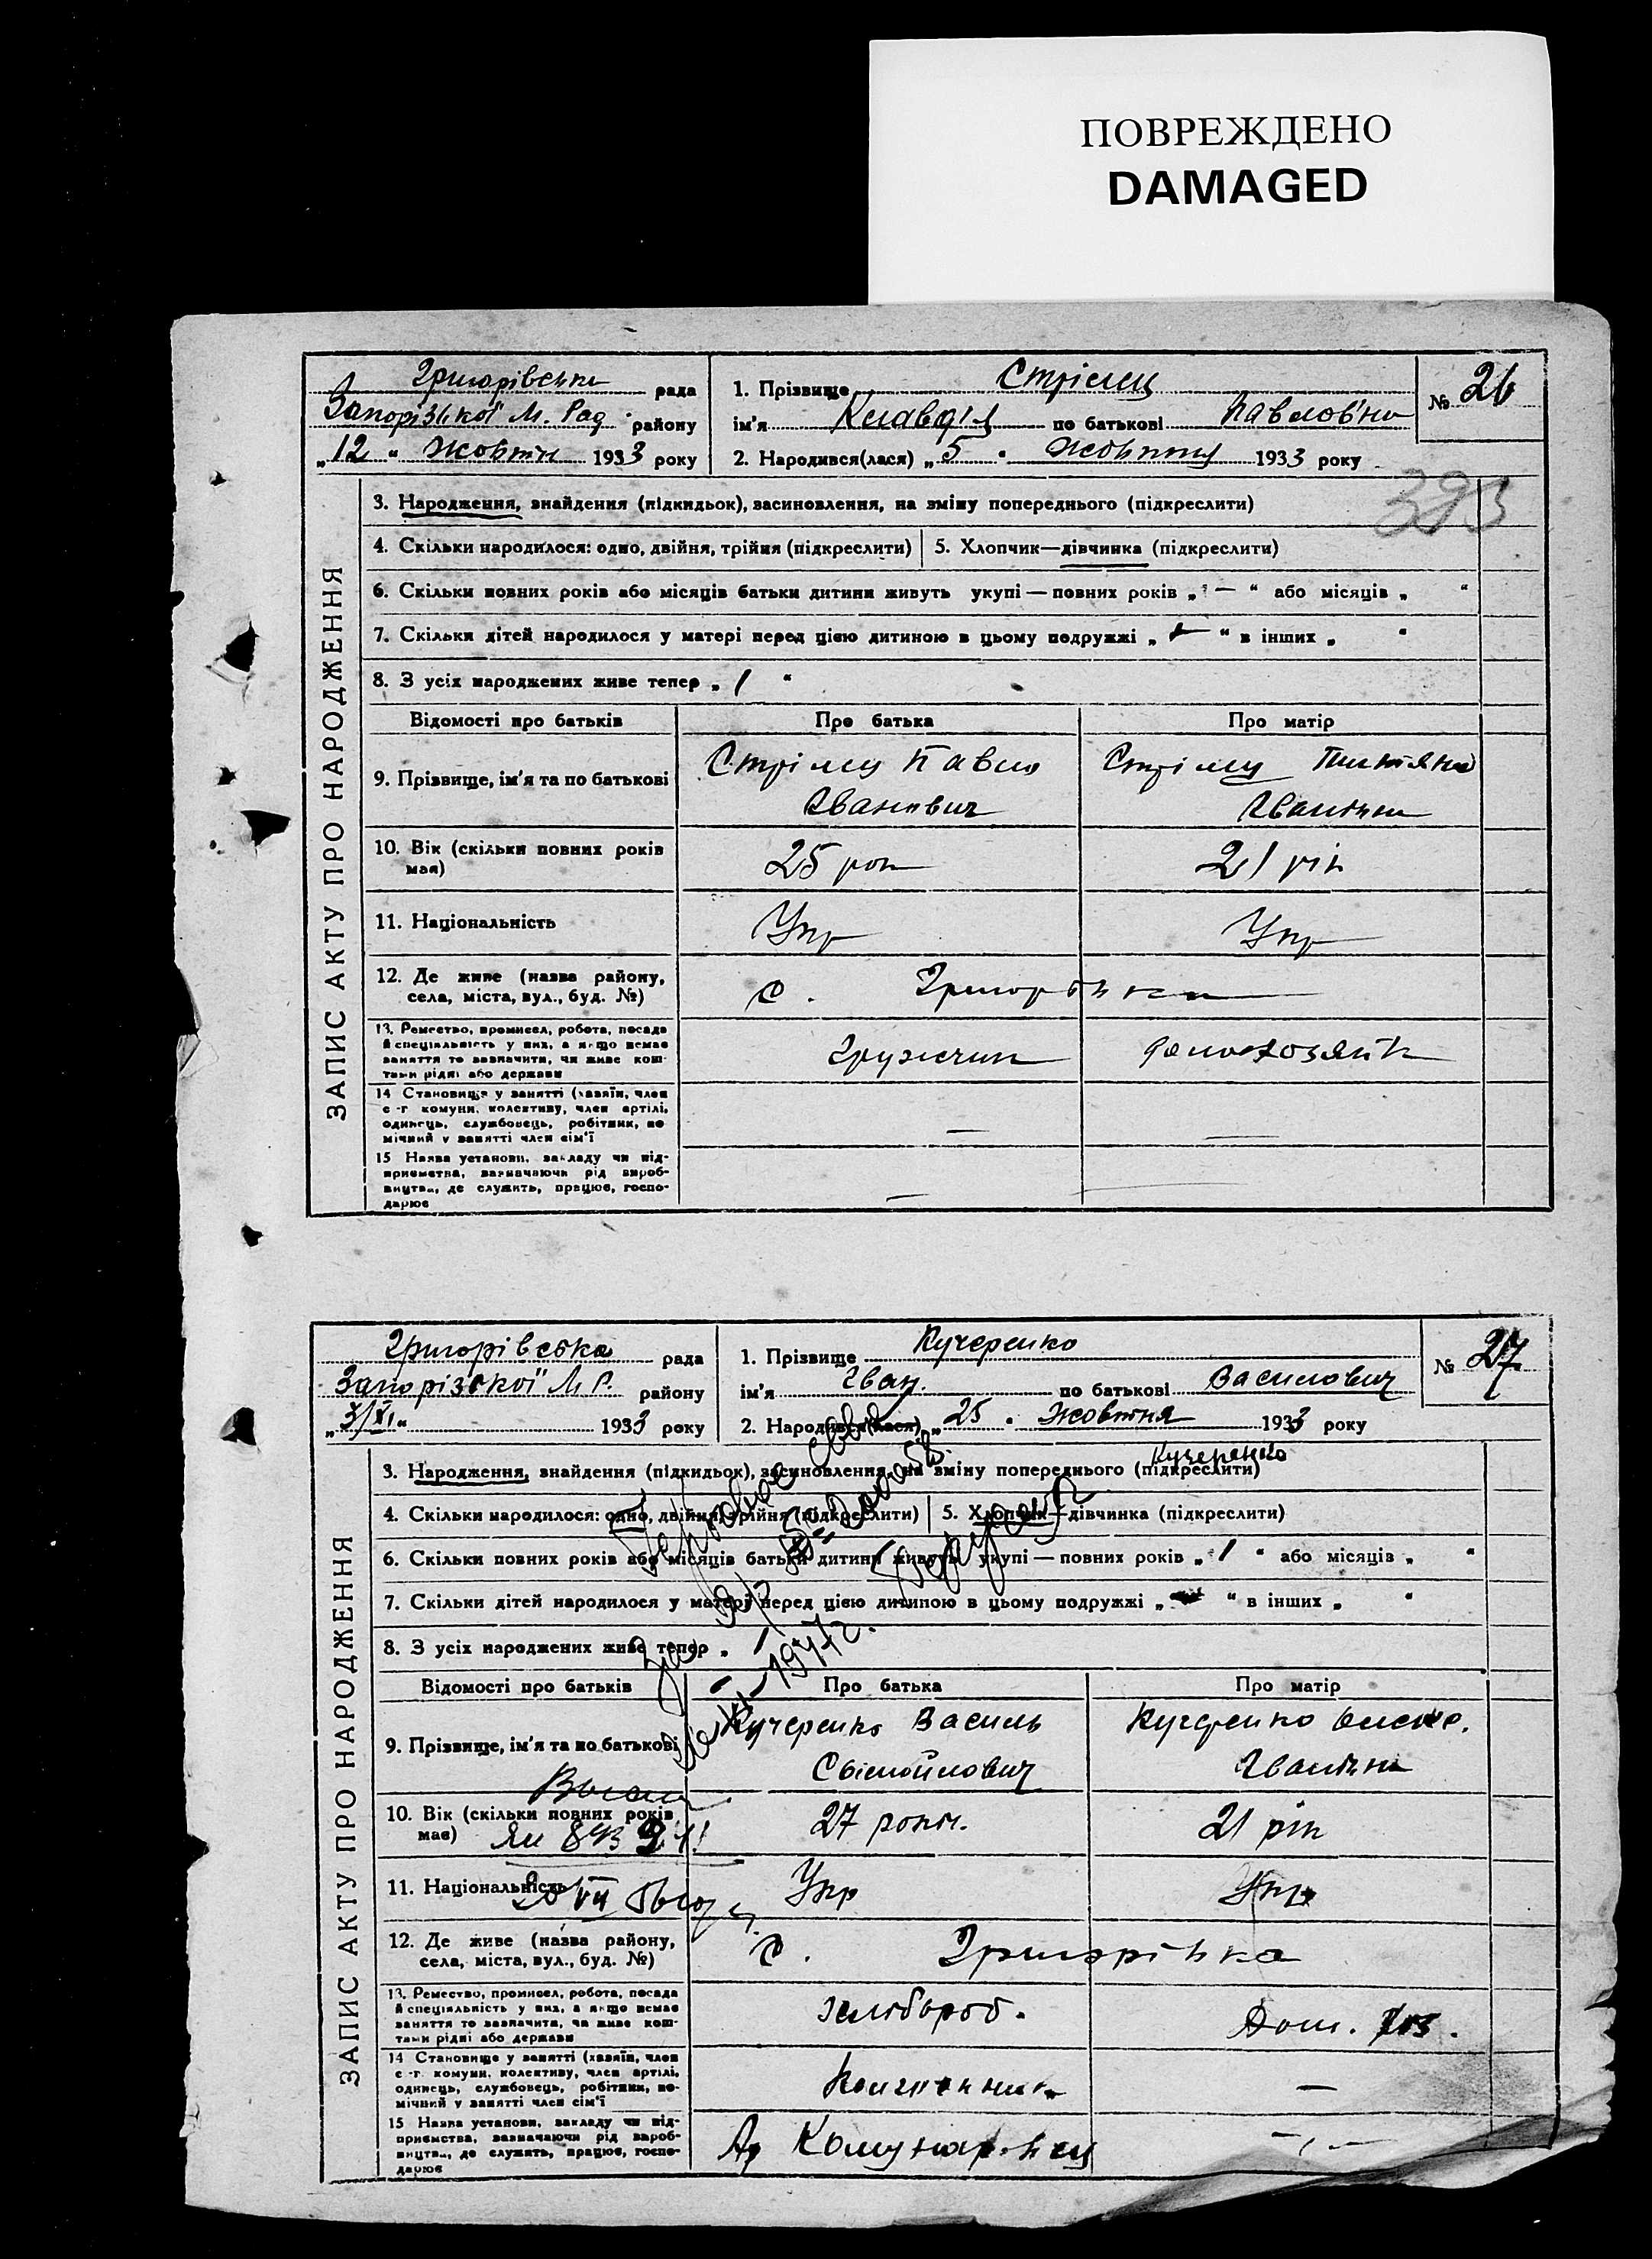 ПОВРЕЖДЕНО
DAMAGED
Григорівська рада
Запорізької М. Рад району
„12“ Жовтн 1933 року
1. Прізвище Стрілец
ім'я Клавдія по батькові Павловна
2. Народився(лася) „5“ Жовтня 1933 року
№ 26
393
ЗАПИС АКТУ ПРО НАРОДЖЕННЯ
3. Народження, знайдення (підкидьок), засиновлення, на зміну попереднього (підкреслити)
4. Скільки народилося: одно, двійня, трійня (підкреслити)
5. Хлопчик—дівчинка (підкреслити)
6. Скільки повних років або місяців батьки дитини живуть укупі — повних років „ — “ або місяців „ “
7. Скільки дітей народилося у матері перед цією дитиною в цьому подружжі „ “ в інших „ “
8. З усіх народжених живе тепер „ 1 “
Відомості про батьків
Про батька
Про матір
9. Прізвище, ім'я та по батькові
Стрілец Павло
Іванович
Стрілец
Іванівна
10. Вік (скільки повних років має)
25 рок
21 рік
11. Національність
Укр
Укр
12. Де живе (назва району, села, міста, вул., буд. №)
с. Григорівка
13. Ремество, промисел, робота, посада й спеціяльність у них, а якщо немає заняття то зазначити, чи живе коштами рідні або держави
Грузчик
домохозяйк
14 Становище у занятті (хазяїн, член с -г комуни, колективу, член артілі, одинець, службовець, робітник, помічний у занятті член сім'ї
—
—
15 Назва установи, закладу чи підприємства, зазначаючи рід виробництва, де служить, працює, господарює
—
Григорівська рада
Запорізької М Р. району
„3/XI“ 1933 року
1. Прізвище Кучеренко
ім'я Іван по батькові Василович
2. Народився(лася) „25“ Жовтня 1933 року
№ 27
Кучеренко
ЗАПИС АКТУ ПРО НАРОДЖЕННЯ
3. Народження, знайдення (підкидьок), засиновлення, на зміну попереднього (підкреслити)
4. Скільки народилося: одно, двійня, трійня (підкреслити)
5. Хлопчик—дівчинка (підкреслити)
6. Скільки повних років або місяців батьки дитини живуть укупі — повних років „ 1 “ або місяців „ “
7. Скільки дітей народилося у матері перед цією дитиною в цьому подружжі „ “ в інших „ “
8. З усіх народжених живе тепер „ 1
Відомості про батьків
Про батька
Про матір
9. Прізвище, ім'я та по батькові
Кучеренко Василь
Кучеренко
Іванівна
10. Вік (скільки повних років має)
27 років.
21 рік
11. Національність
Укр
Укр
12. Де живе (назва району, села, міста, вул., буд. №)
с. Григорівка
13. Ремество, промисел, робота, посада й спеціяльність у них, а якщо немає заняття то зазначити, чи живе коштами рідні або держави
хлібороб.
Дом. хоз.
14 Становище у занятті (хазяїн, член с -г комуни, колективу, член артілі, одинець, службовець, робітник, помічний у занятті член сім'ї
—
15 Назва установи, закладу чи підприємства, зазначаючи рід виробництва, де служить, працює, господарює
Ар Комунаровец